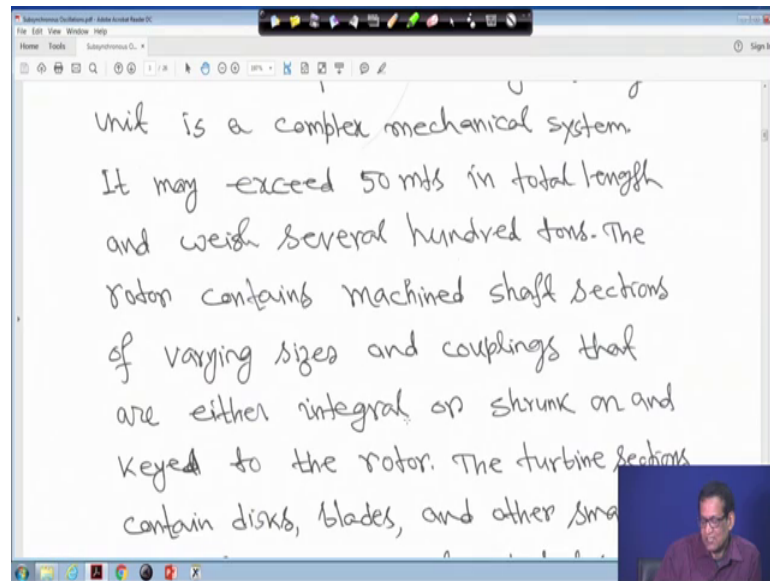 Subsynchronous Oscillations.pdf - Adobe Acrobat Reader DC
File Edit View Window Help
Home Tools Subsynchronous O... × Sign In
unit is a complex mechanical system.
It may exceed 50 mts in total length
and weish several hundred tons. The
rotor contains machined shaft sections
of varying sizes and couplings that
are either integral or shrunk on and
keyed to the rotor. The turbine sections
contain disks, blades, and other sma